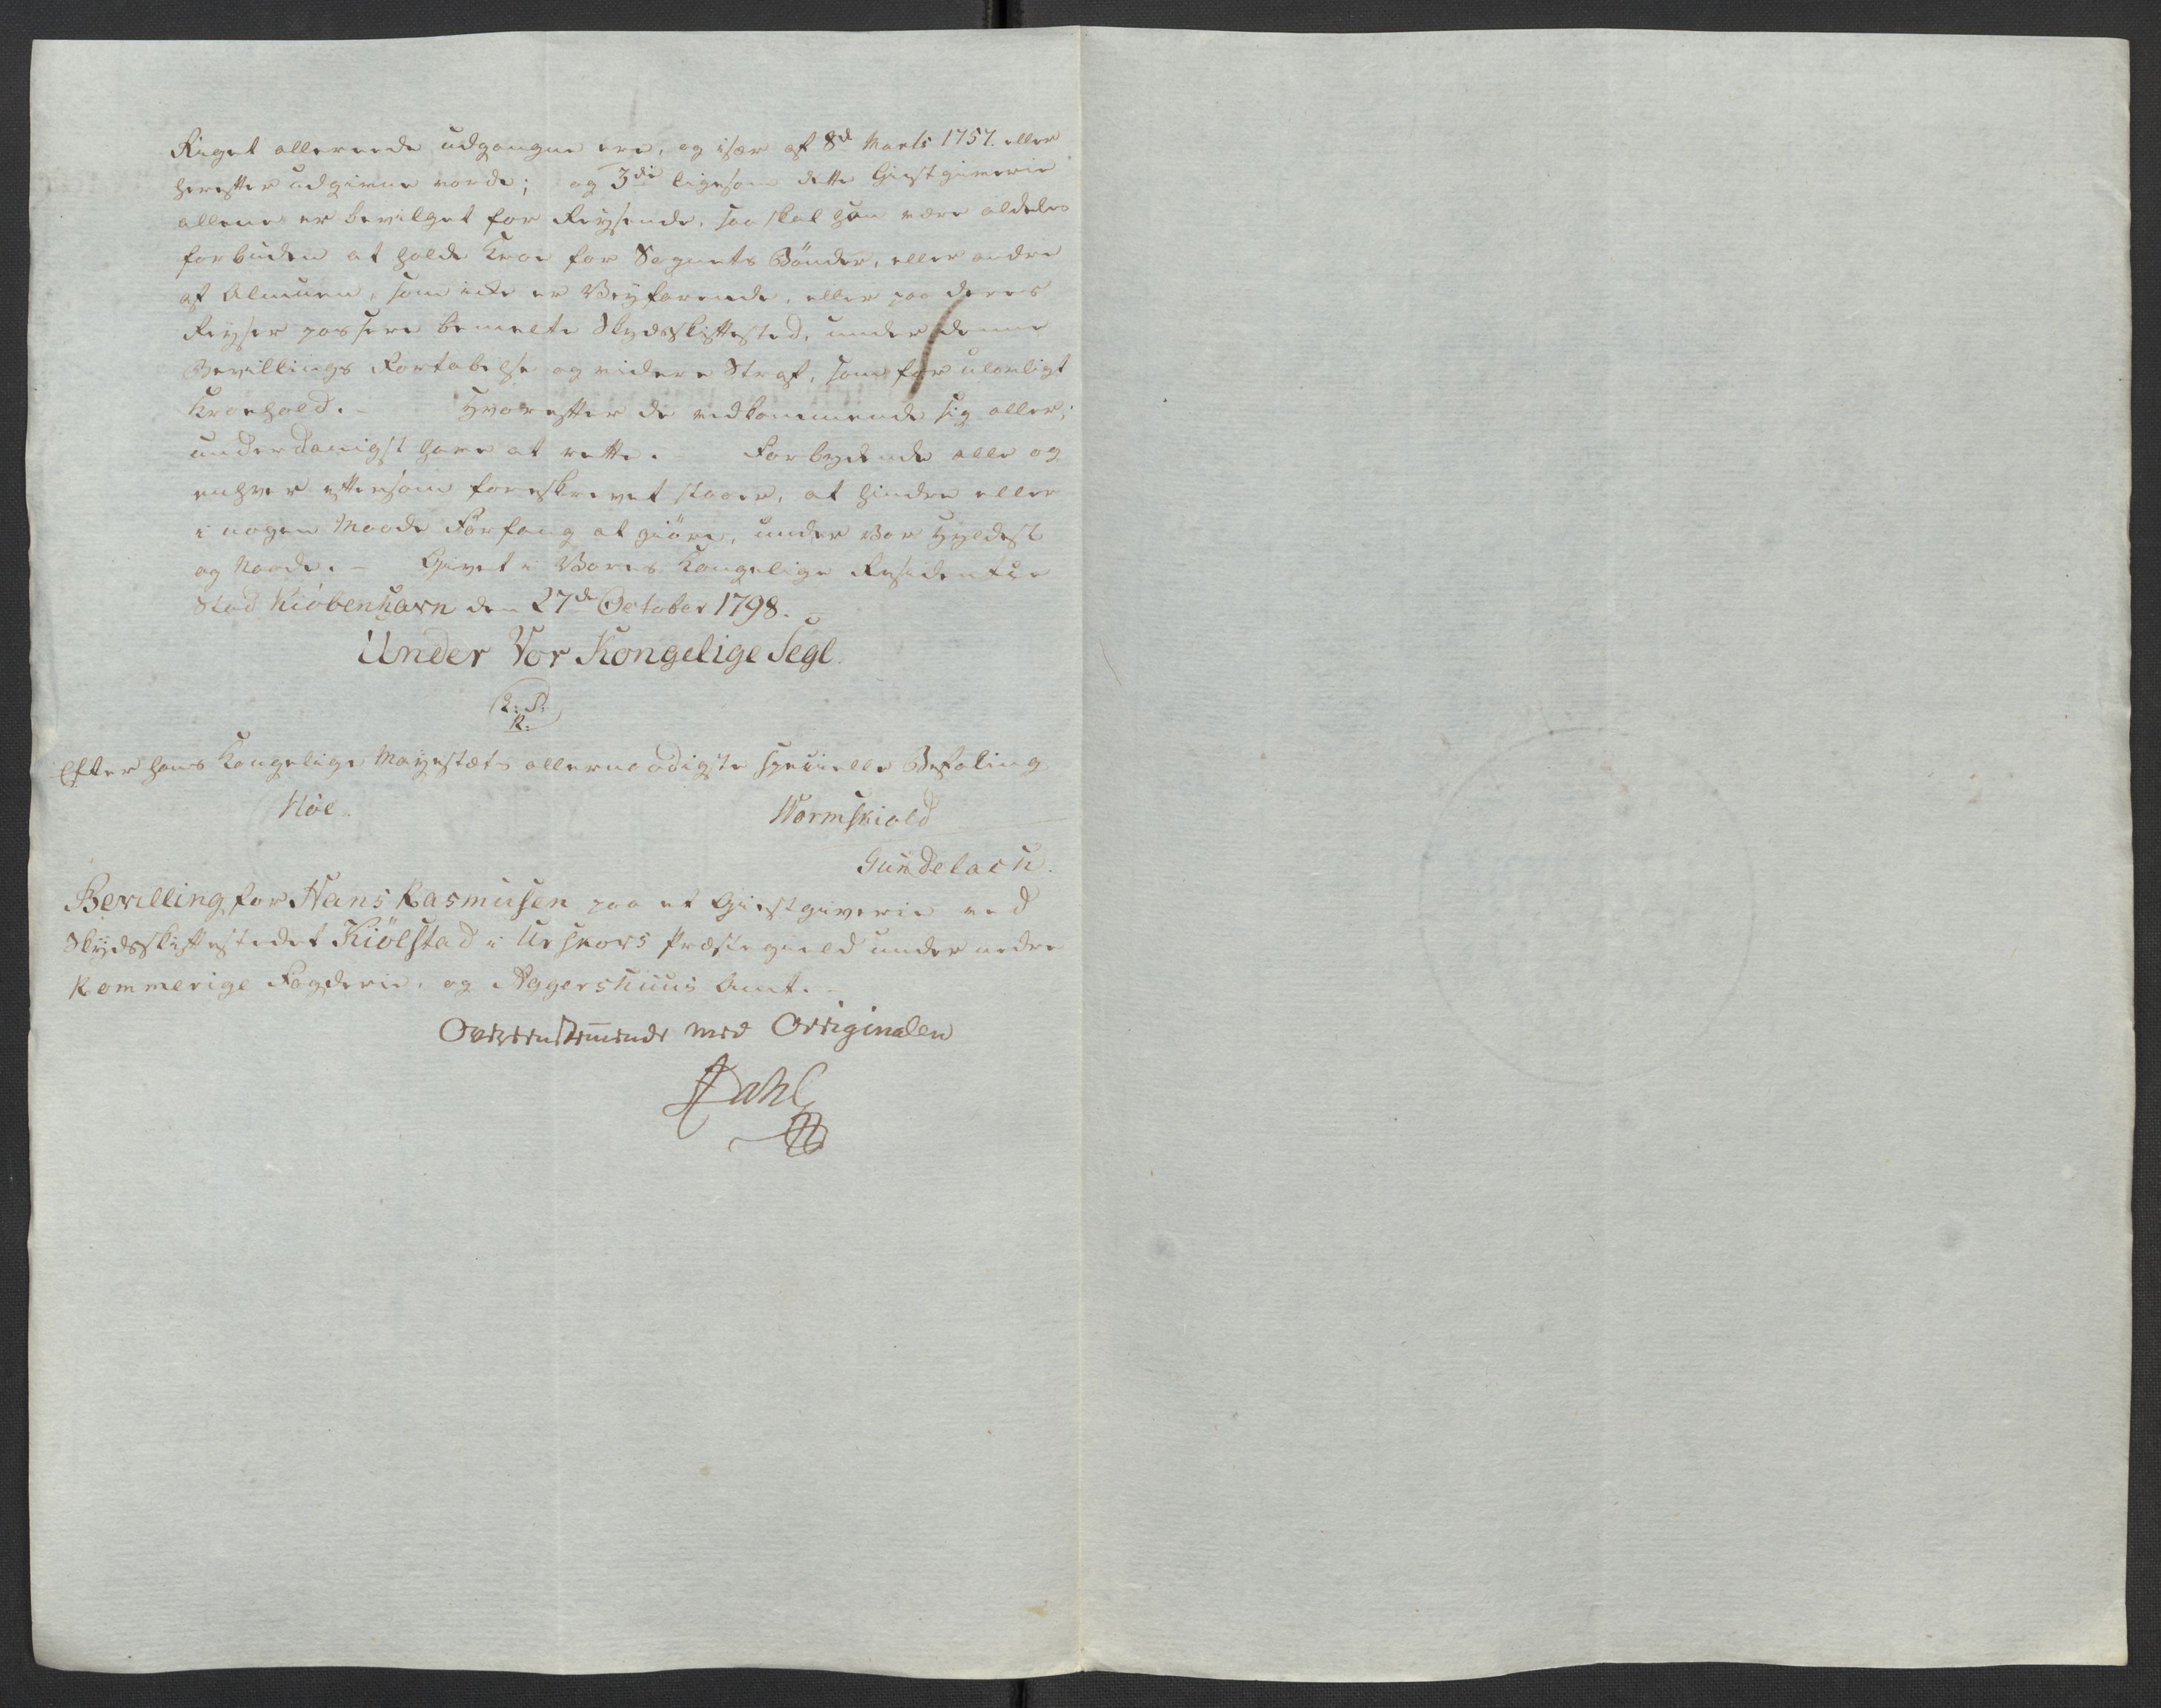 Riget allereede udgangne ere, og især af 8d Marti 1757. eller
herefter udgivne vorde; og 3di ligesom dette Giestgiverie
allene er bevilget for Reysende, saa skal han være aldeles
forbuden at holde Kroe for Sognets Bönder, eller andre
af Almuen, som icke er Veyfarende, eller paa deres
Reyser passere bemelte Skydsskiftested, under denne
Bevillings Fortabelse og videre Straf, som for ulovligt
Kroehold. – Hvorefter de vedkommende sig aller-
underdanigst have at rette. – Forbydende alle og
enhver eftersom foreskrevet staaer, at hindre eller
i nogen Maade Forfang at giöre, under Vor Hyldest
og Naade. – Givet i Vores Kongelige Residentze
Stad Kiöbenhavn den 27de October 1798.
Under Vor Kongelige Segl.
L: S:
R:
Efter Hans Kongelige Mayestæts allernaadigste specielle Befaling
Höe.
Wormskiold
Gundelach.
Bevilling for Hans Rasmusen paa et Giestgiverie ved
Skydsskiftestedet Kiölstad i Urskovs Præstegield under nedre
Rommerige Fogderie, og Aggershuus Amt.
Overeenstemmende med Originalen
Dahl